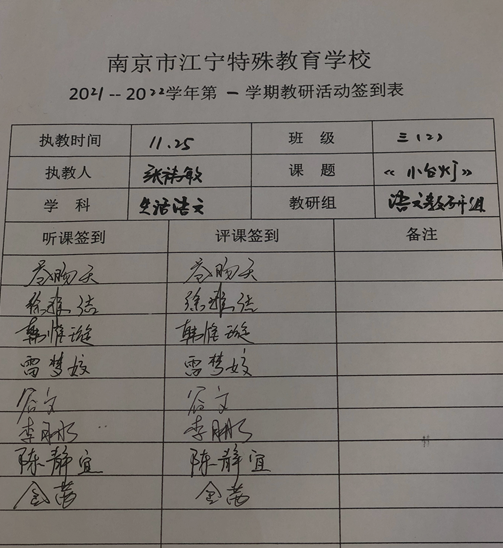 南京市江宁特殊教育学校
2021--2022学年第一学期教研活动签到表
执教时间 11.25 班级 三(2)
执教人 张祎敏 课题 《小台灯》
学科 生活语文 教研组 语文教研组
听课签到 评课签到 备注
徐雅洁 徐雅洁
韩惟璇 韩惟璇
雷梦姣 雷梦姣
谷文 谷文
李
陈静宜 陈静宜
金茜 金茜